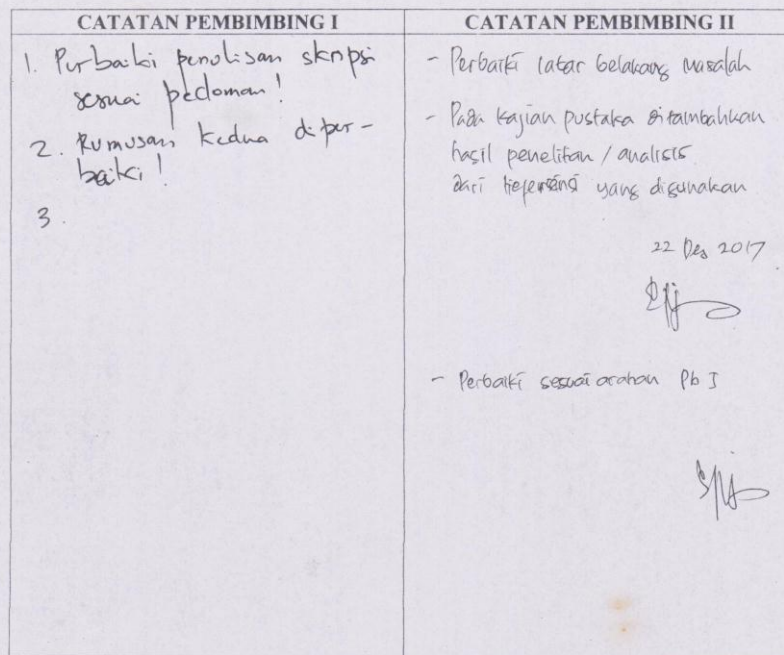 CATATAN PEMBIMBING I
1. Perbaiki penulisan skripsi
sesuai pedoman!
2. Rumusan kedua diper-
baiki!
3.
CATATAN PEMBIMBING II
- Perbaiki latar belakang masalah
- Pada kajian pustaka ditambahkan
hasil penelitan / analisis
dari referensi yang digunakan
22 Des 2017
- Perbaiki sesuai arahan Pb I